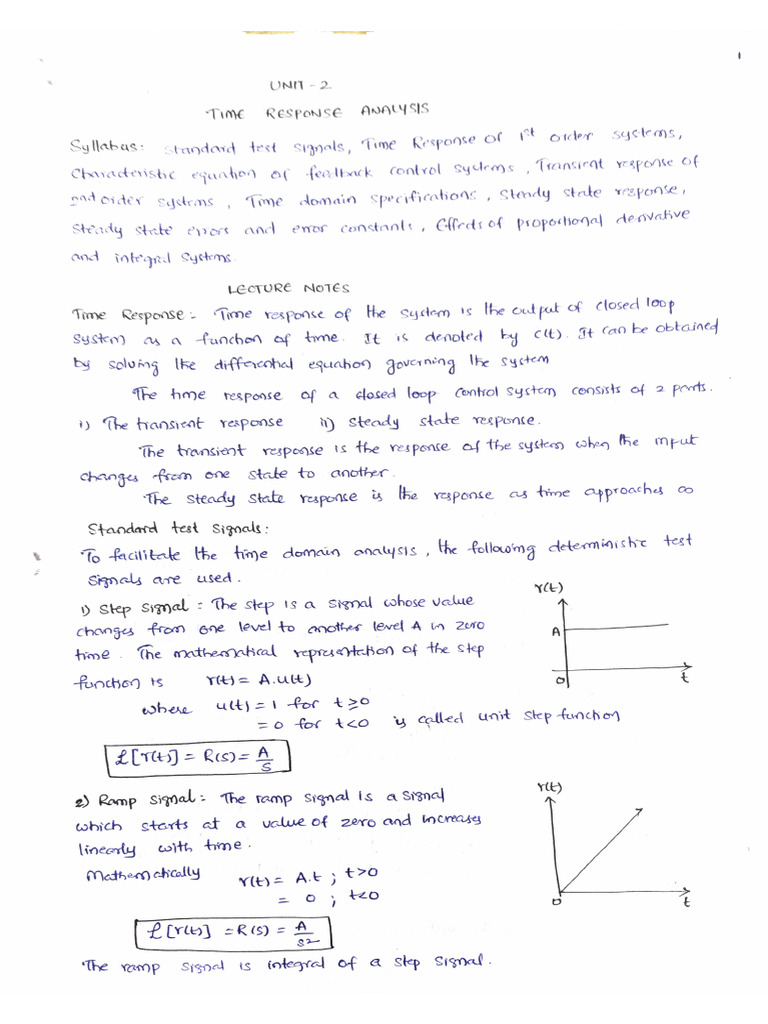 1
UNIT - 2
TIME RESPONSE ANALYSIS
Syllabus: Standard test signals, Time Response of 1st order systems,
Characteristic equation of feedback control systems, Transient response of
2nd order systems, Time domain specifications, Steady state response,
Steady state errors and error constants, Effects of proportional derivative
and integral systems.
LECTURE NOTES
Time Response:- Time response of the system is the output of closed loop
system as a function of time. It is denoted by c(t). It can be obtained
by solving the differential equation governing the system
The time response of a closed loop control system consists of 2 parts.
i) The transient response ii) Steady state response.
The transient response is the response of the system when the input
changes from one state to another.
The steady state response is the response as time approaches ∞
Standard test signals:
To facilitate the time domain analysis, the following deterministic test
signals are used.
1) Step signal: The step is a signal whose value
changes from one level to another level A in zero
time. The mathematical representation of the step
function is r(t) = A.u(t)
where u(t) = 1 for t ≥ 0
= 0 for t < 0 is called unit step function
ℒ[r(t)] = R(s) = A/s
r(t)
A
0
t
2) Ramp signal: The ramp signal is a signal
which starts at a value of zero and increases
linearly with time.
Mathematically r(t) = A.t ; t>0
= 0 ; t<0
ℒ[r(t)] = R(s) = A/s²
r(t)
0
t
The ramp signal is integral of a step signal.